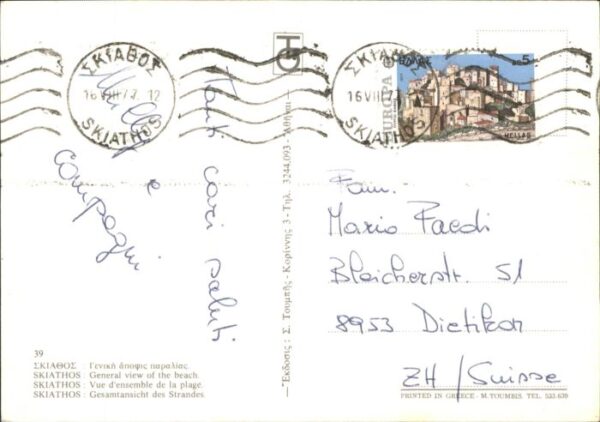 ΣΚΙΑΘΟΣ
16 VIII 77. 12
SKIATHOS
Tanti cari saluti
e
compagni
—Ἔκδοσις: Σ. Τουμπῆς - Κορίννης 3 - Τηλ. 3244.093 - Ἀθῆναι—
ΣΚΙΑΘΟΣ
16 VIII
SKIATHOS
EUROPA
5
HELLAS
Fam.
Mario Faedi
Bleicherstr. 51
8953 Dietikon
ZH / Suisse
39
ΣΚΙΑΘΟΣ : Γενική ἄποψις παραλίας.
SKIATHOS : General view of the beach.
SKIATHOS : Vue d'ensemble de la plage.
SKIATHOS : Gesamtansicht des Strandes.
PRINTED IN GREECE - M. TOUMBIS. TEL. 533-639